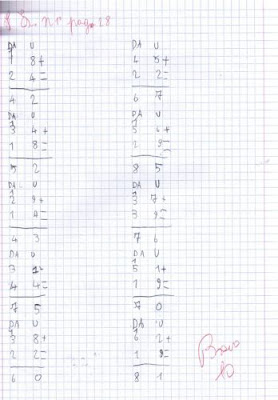 Es. n° 1 pag. 28
DA U
1
1 8+
2 4=
4 2
DA U
1
3 4+
1 8=
5 2
DA U
1
2 9+
1 4=
4 3
DA U
3 1+
4 4=
7 5
DA U
1
3 8+
2 2=
6 0
DA U
4 5+
2 2=
6 7
DA U
1
5 6+
2 9=
8 5
DA U
1
3 7+
3 9=
7 6
DA U
1
5 1+
1 9=
7 0
DA U
1
6 2+
1 9=
8 1
Bravo
10